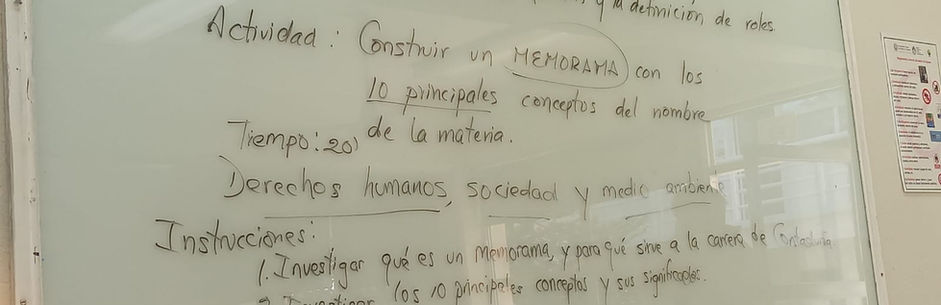 y la definición de roles.
Actividad: Construir un MEMORAMA con los
10 principales conceptos del nombre
Tiempo: 20' de la materia.
Derechos humanos, sociedad y medio ambiente
Instrucciones:
1. Investigar qué es un memorama, y para qué sirve a la carrera de Contaduría
los 10 principales conceptos y sus significados.